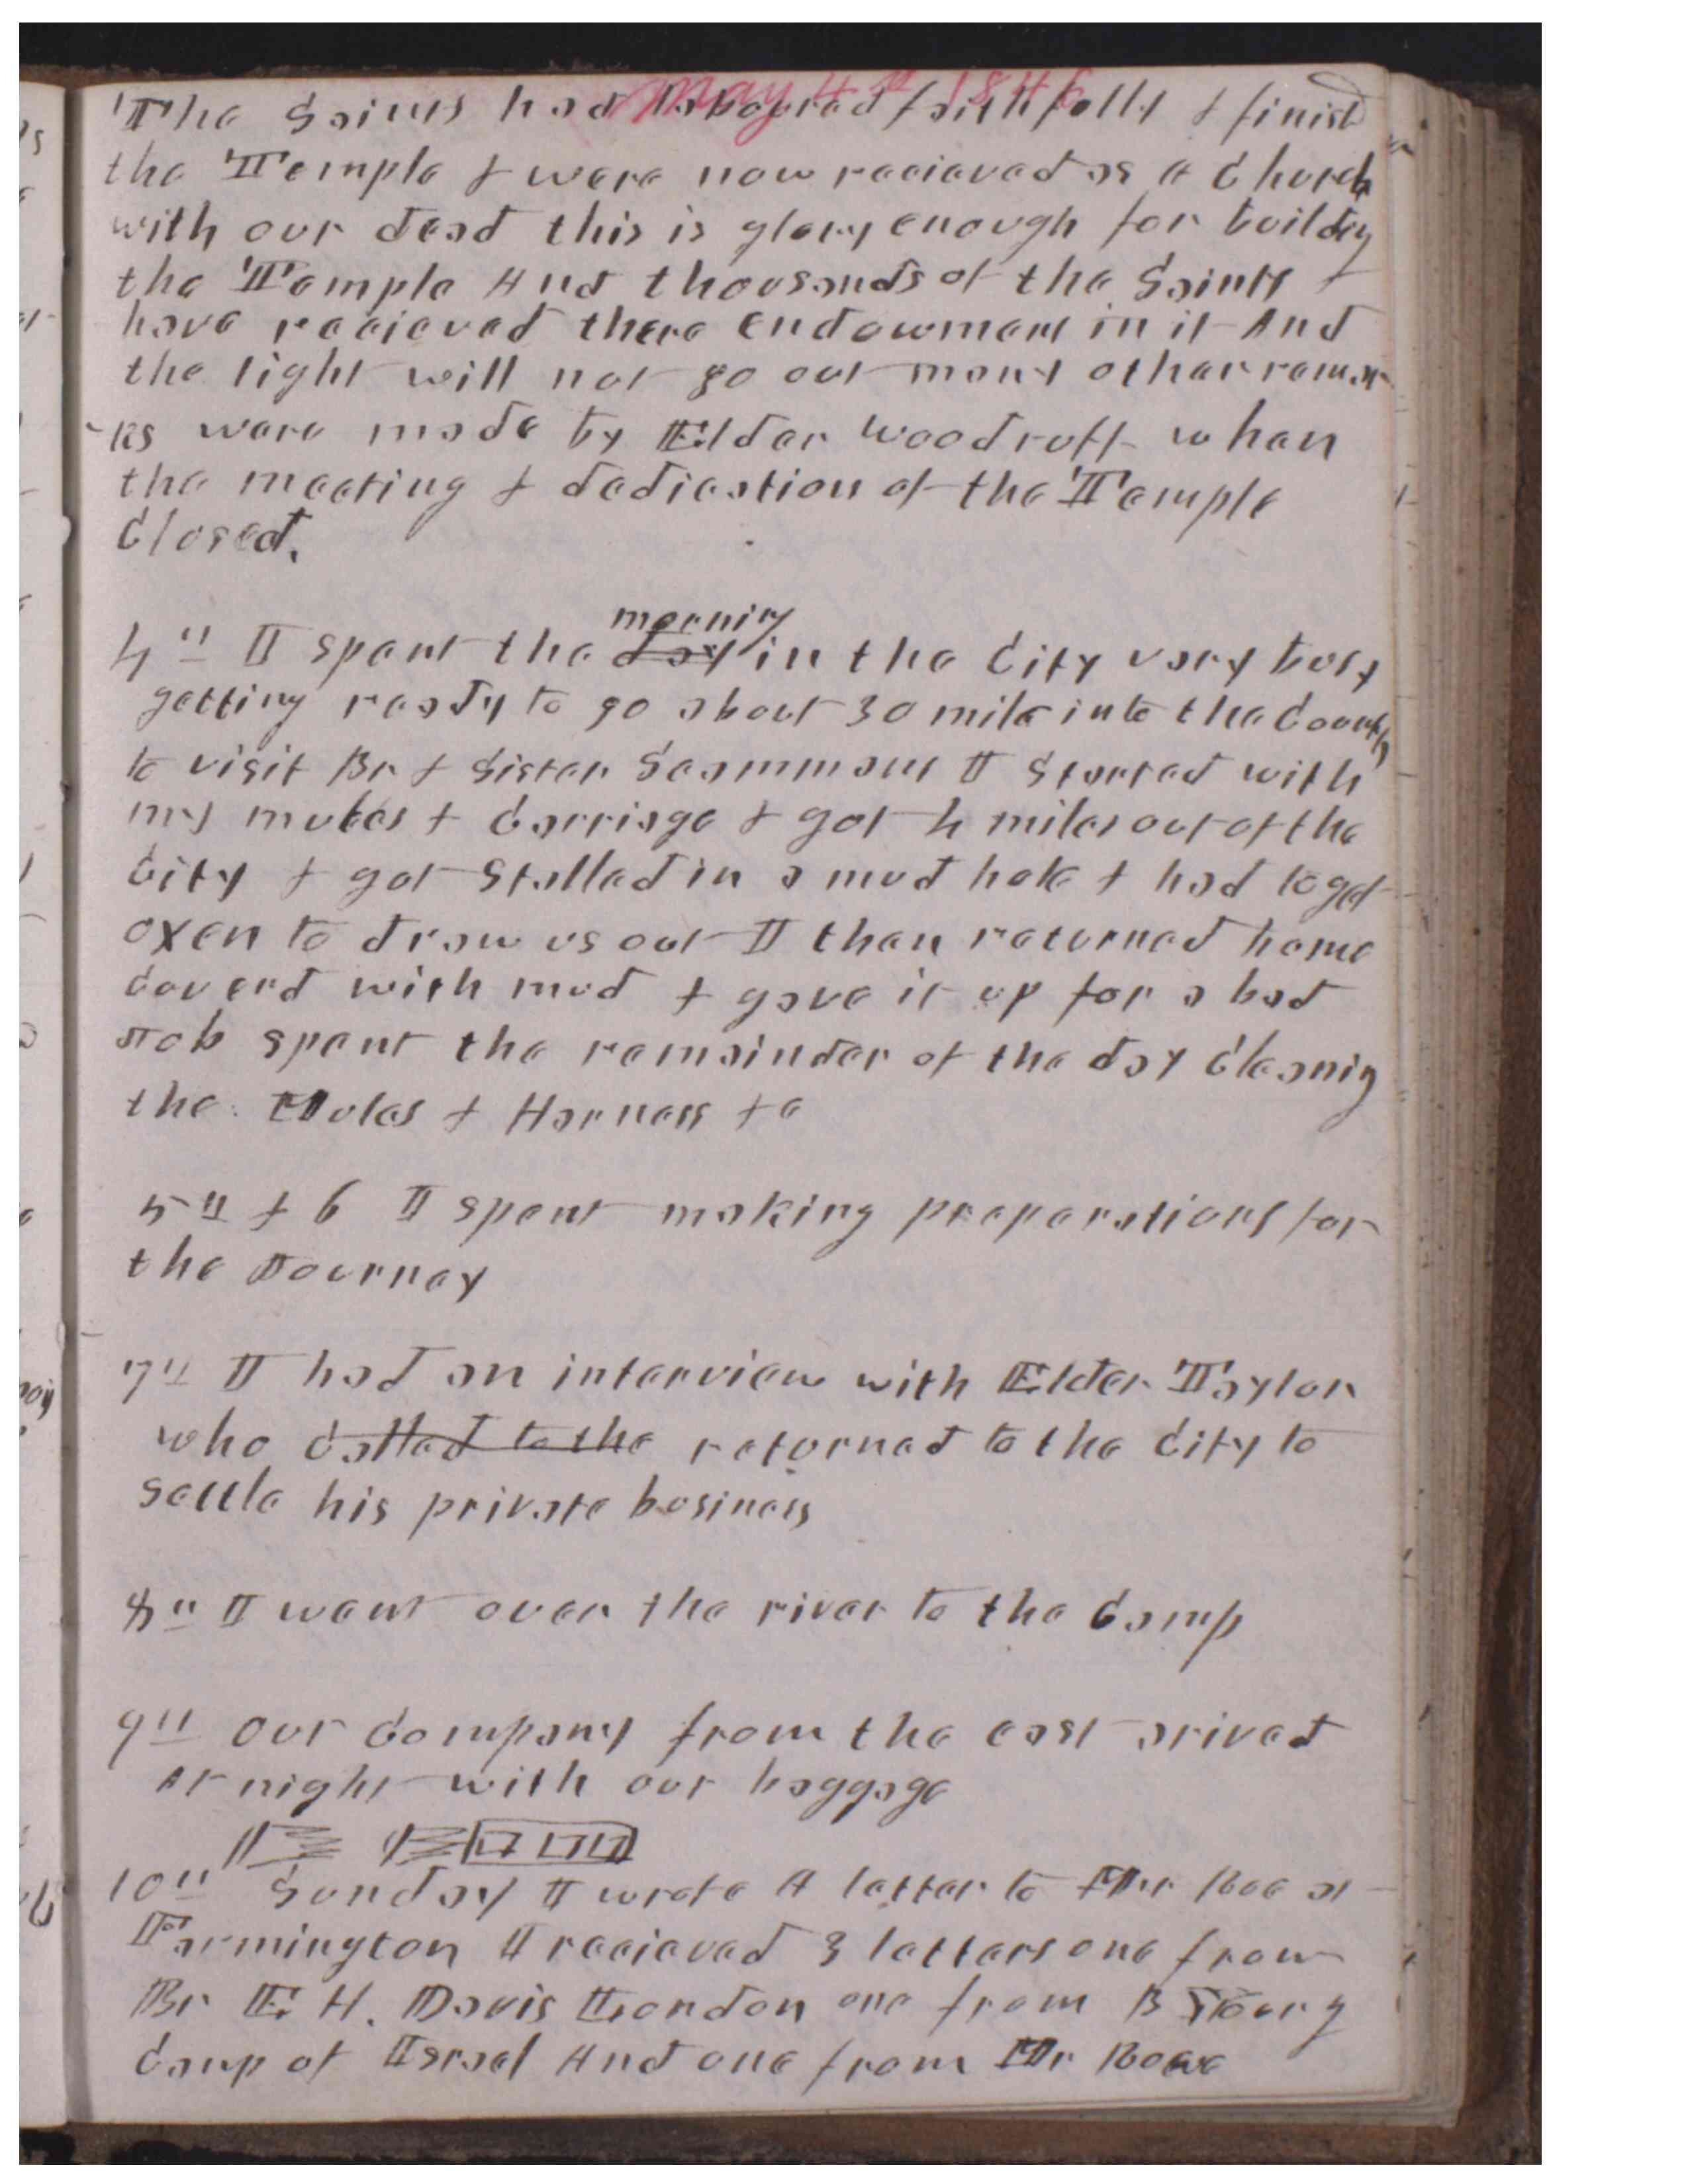 May 4th 1846
The Saints had laboured faithfully & finisd
the Temple & were now receieved as a Church
with our dead this is glory enough for buildig
the Temple And thousands of the Saints
have receieved there endowment in it And
the light will not go out many other remar-
-ks were made by Elder Woodruff when
the meeting & dedication of the Temple
Closed.
morning
4th I spent the day in the City very busy
getting ready to go about 30 mile into the County
to visit Br & Sister Scammans I started with
my mules & Carriage & got 4 miles out of the
City & got Stalled in a mud hole & had to get
oxen to draw us out I then returned home
Coverd with mud & gave it up for a bad
Job spent the remainder of the day Cleanig
the Mules & Harness &c
5th & 6 I spent making preparations for
the Journey
7th I had an interview with Elder Taylor
who called to the returned to the City to
settle his private business
8th I went over the river to the Camp
9th our Company from the east arived
At night with our baggage
10th Sunday I wrote A letter to Mr Rose at
Farmington I receieved 3 letters one from
Br E H. Davis London one from B Young
Camp of Israel And one from Mr Rowe